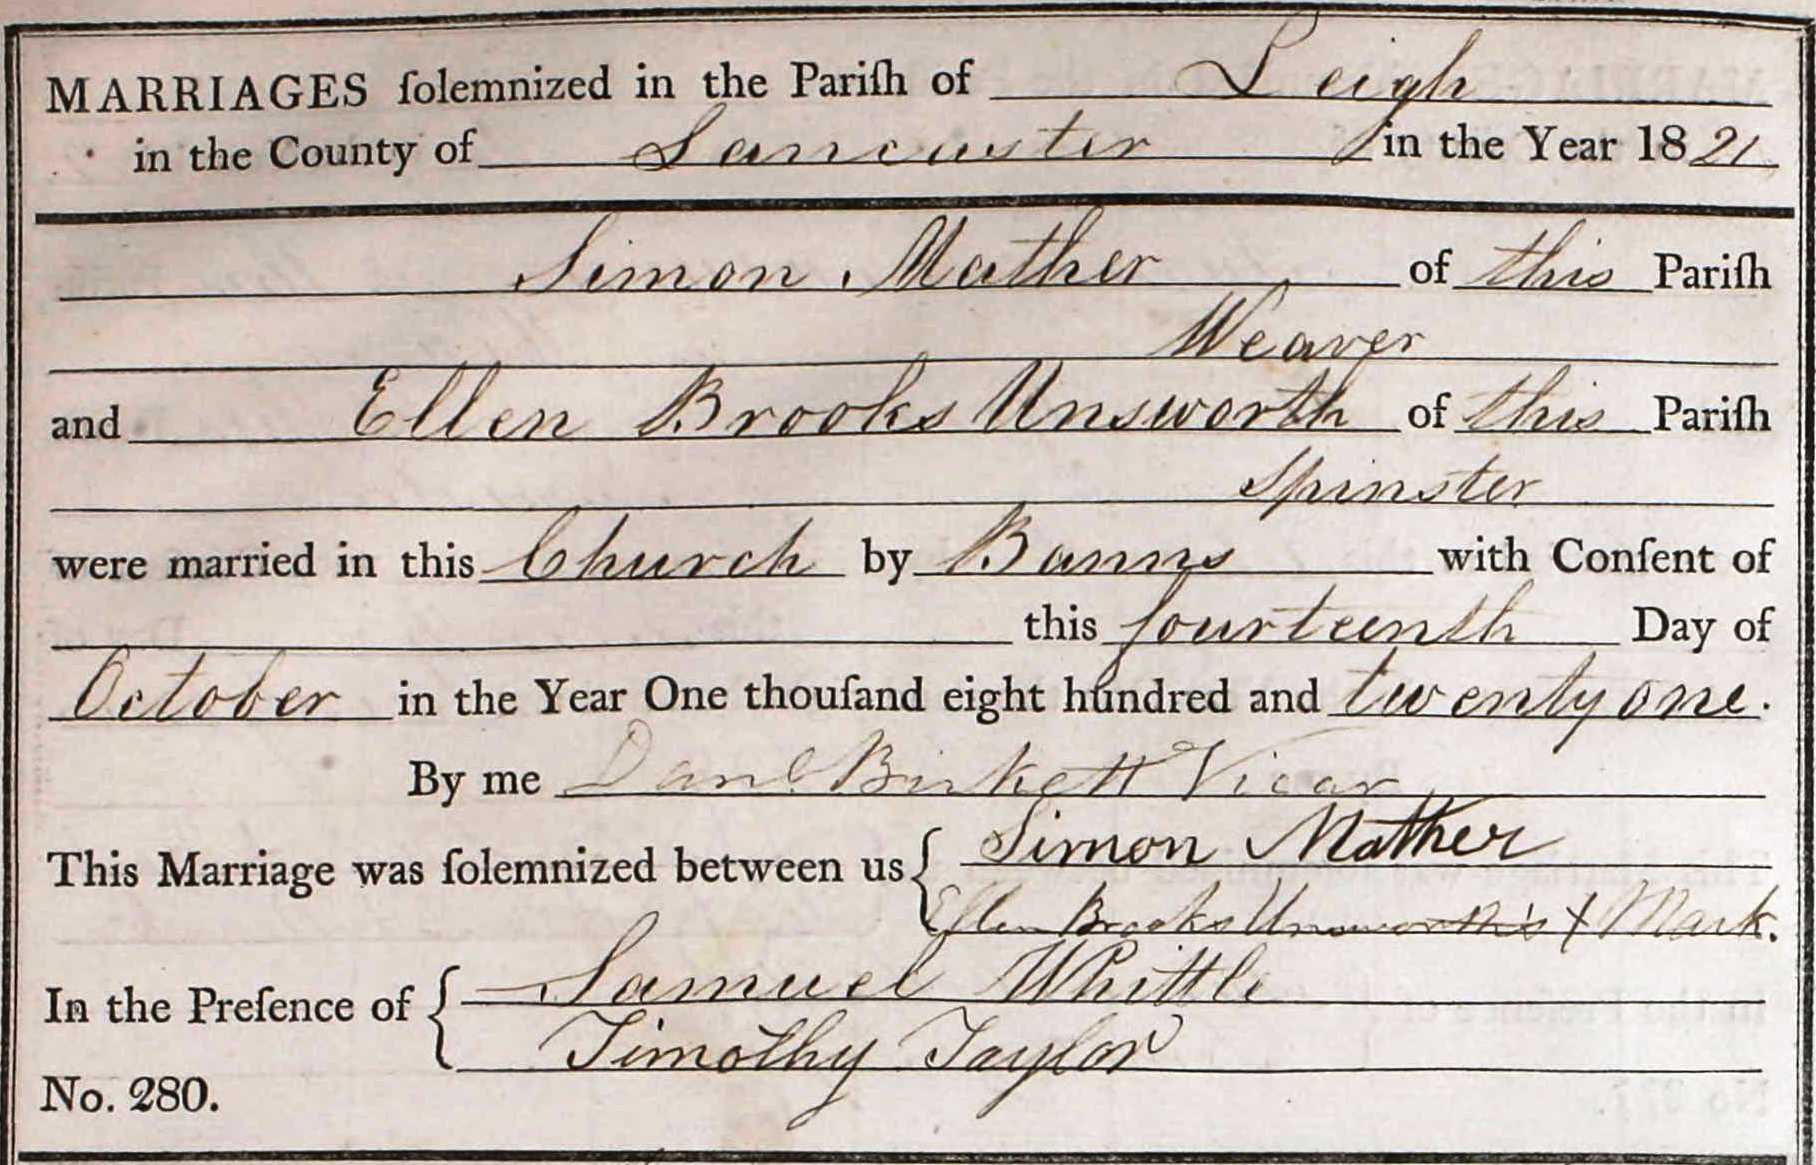 MARRIAGES ſolemnized in the Pariſh of Leigh
in the County of Lancaster in the Year 1821
Simon Mather of this Pariſh
Weaver
and Ellen Brooks Unsworth of this Pariſh
Spinster
were married in this Church by Banns with Conſent of
this fourteenth Day of
October in the Year One thouſand eight hundred and twenty one.
By me Danl Birkett Vicar
This Marriage was ſolemnized between us { Simon Mather
Ellen Brooks Unsworth's X Mark.
In the Preſence of { Samuel Whittle
Timothy Taylor
No. 280.